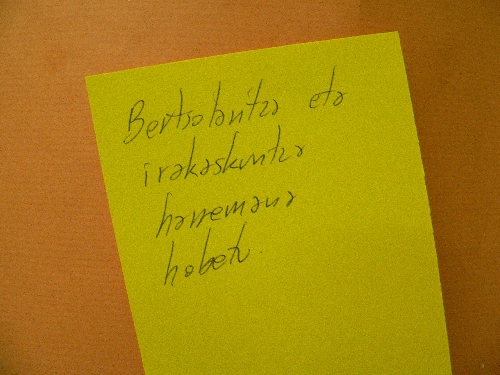 Bertsolaritza eta
irakaskuntza
harremana
hobetu.